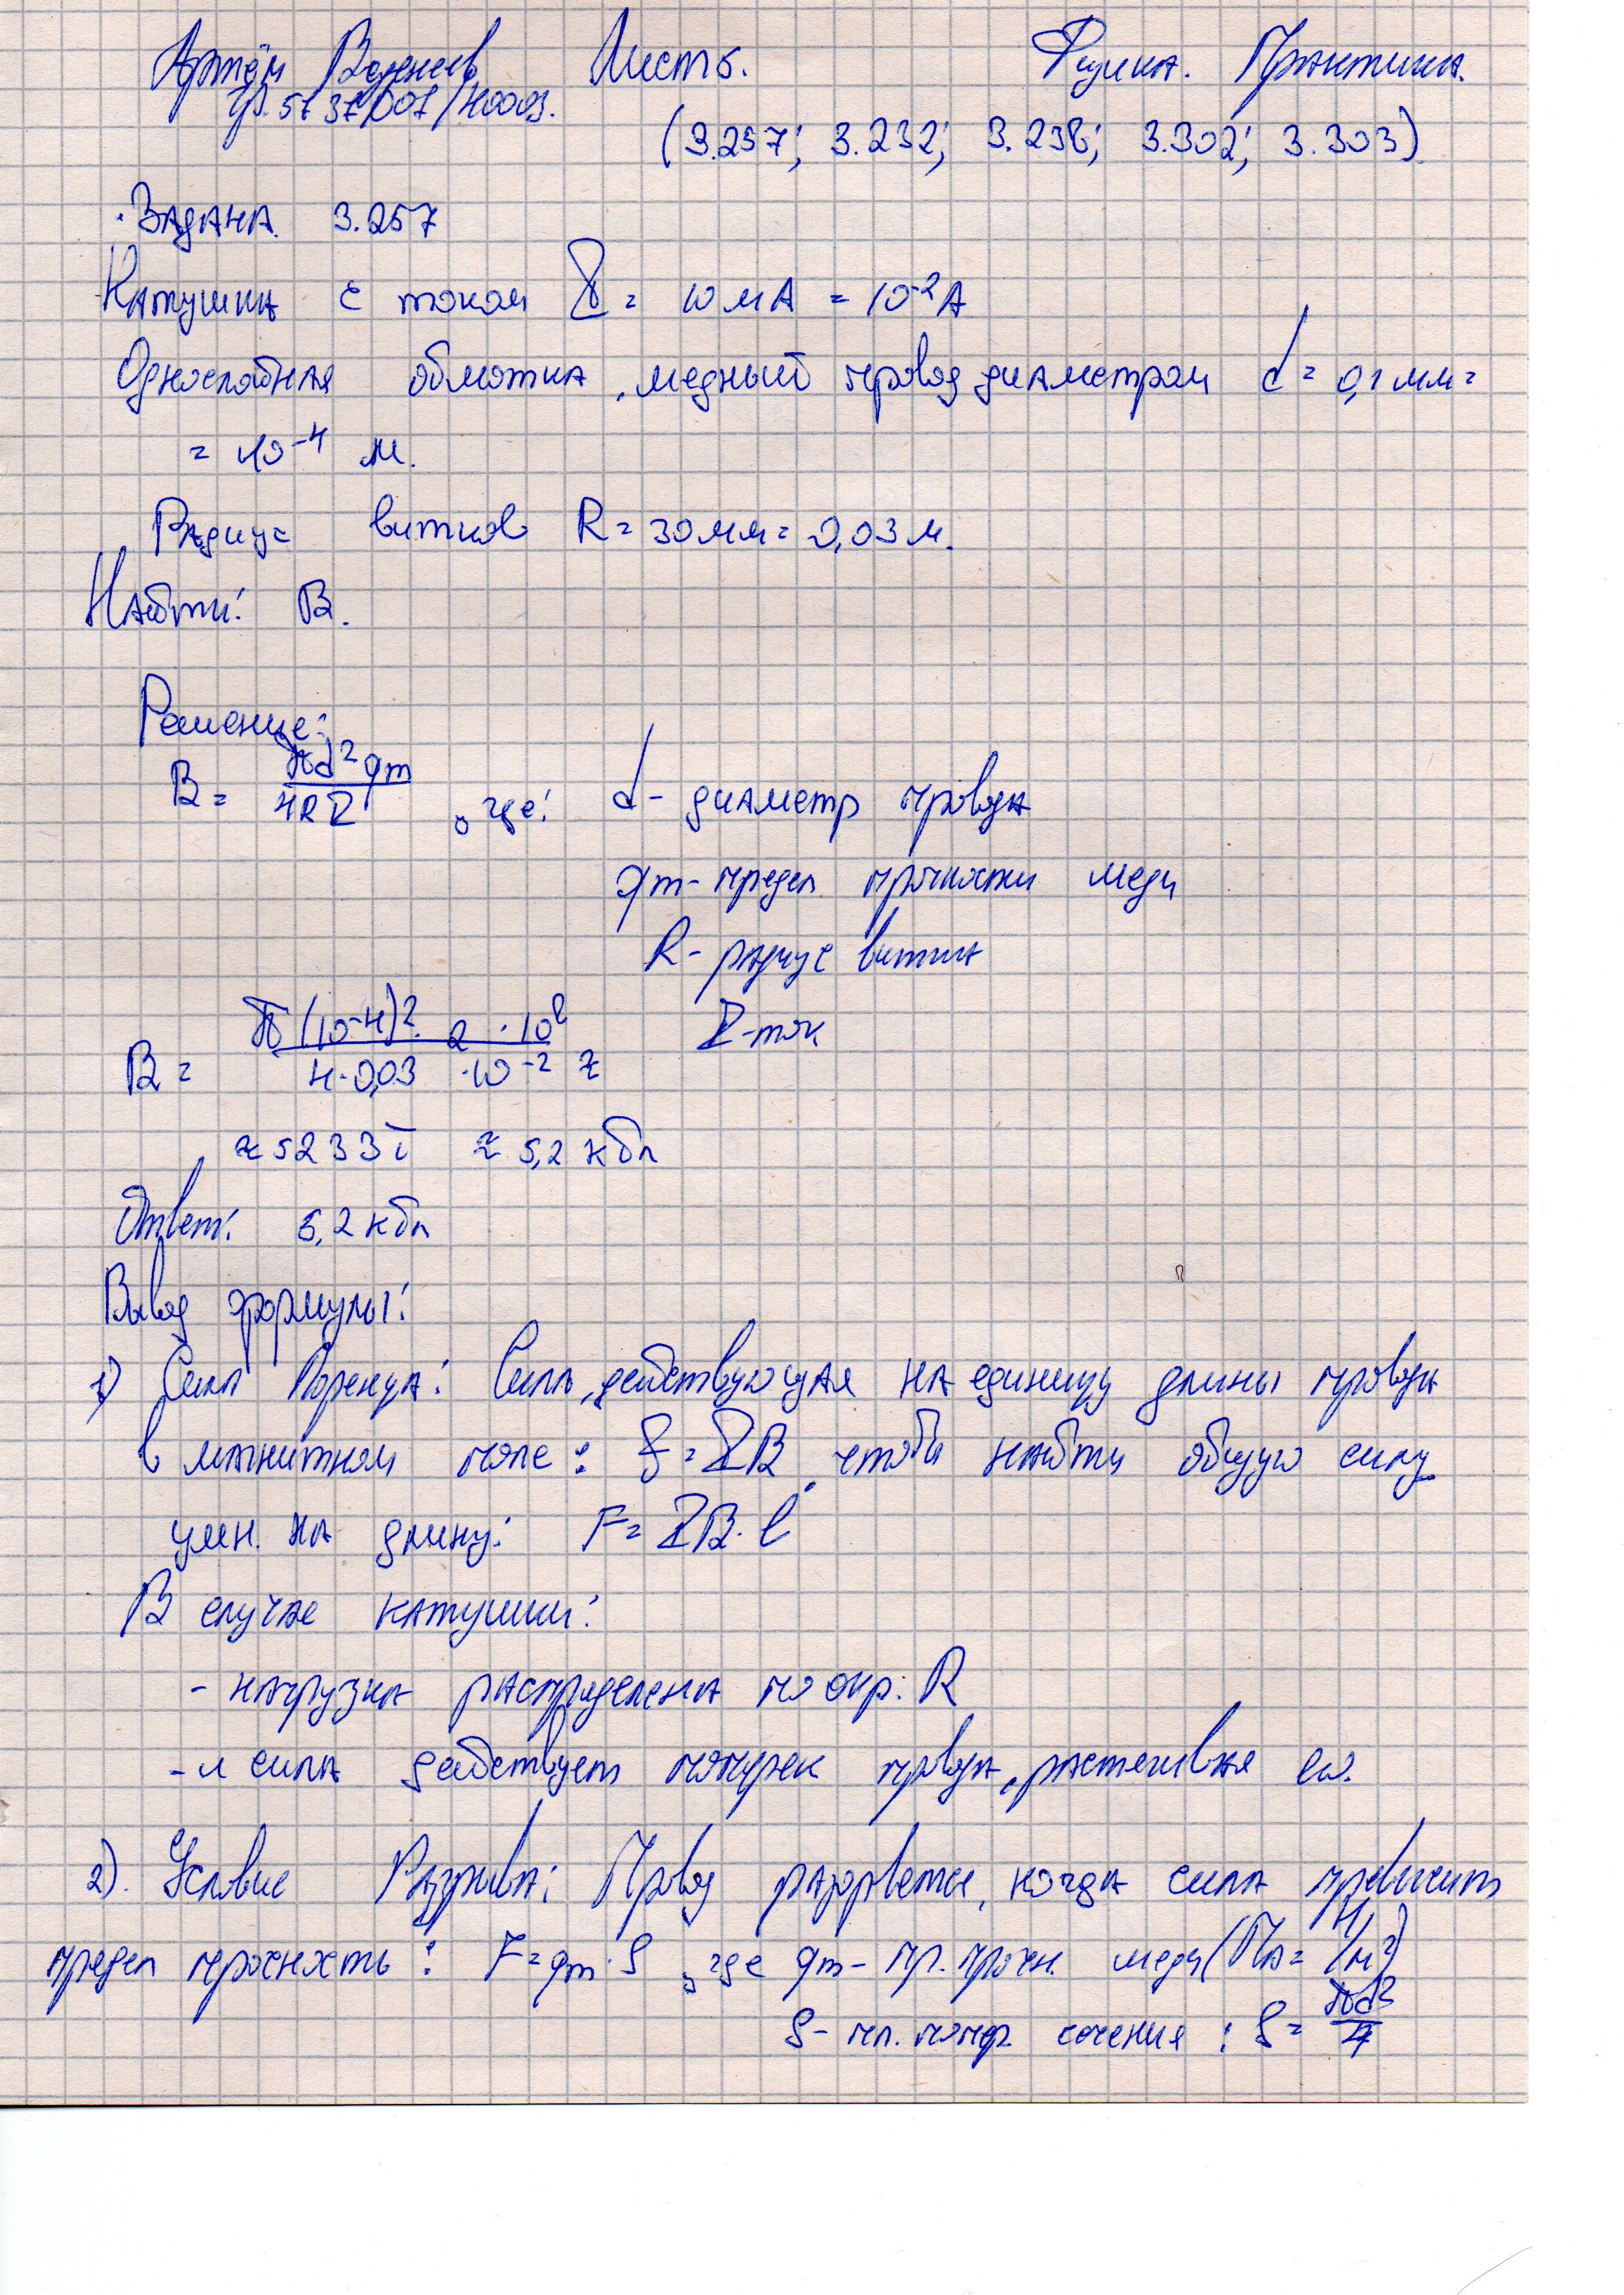 Артём Лист 5. Физика. Практика.
гр. 5137001/40003.
(3.257; 3.232; 3.238; 3.302; 3.303)
Задача 3.257
Катушка с током I = 10 мА = 10⁻² А
Однослойная обмотка, медный провод диаметром d = 0,1 мм =
= 10⁻⁴ м.
Радиус витков R = 30 мм = 0,03 м.
Найти: B.
Решение:
B = πd² qm / 4RI , где: d - диаметр провода
qm - предел прочности меди
R - радиус витка
I - ток
B = π(10⁻⁴)² · 2 · 10⁸ / 4 · 0,03 · 10⁻² ≈
≈ 5233 ≈ 5,2 кТл
Ответ: 5,2 кТл
Вывод формулы:
1) Сила Лоренца: Сила, действующая на единицу длины провода
в магнитном поле: f = IB, чтобы найти общую силу
умн. на длину: F = IB · l
В случае катушки:
- нагрузка распределена по окр. R
- и сила действует поперек провода, растягивая его.
2). Условие Разрыва: Провод разорвется, когда сила превысит
предел прочность: F = qm · S , где qm - пр. прочн. меди (Па = Н/м²)
S - пл. попер. сечения : S = πd² / 4